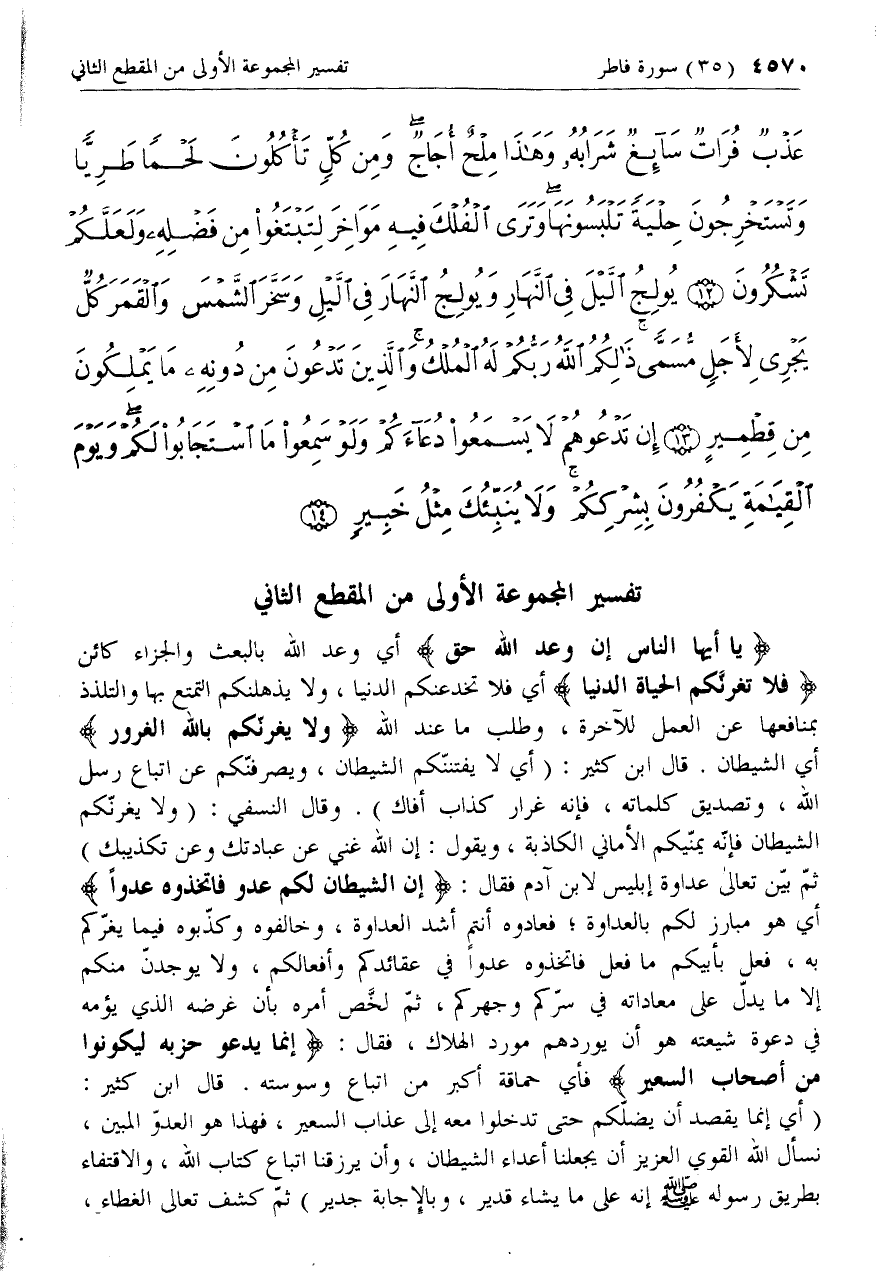 ٤٥٧٠ (٣٥) سورة فاطر تفسير المجموعة الأولى من المقطع الثاني
عَذْبٌ فُرَاتٌ سَآئِغٌ شَرَابُهُۥ وَهَٰذَا مِلْحٌ أُجَاجٌۖ وَمِن كُلٍّ تَأْكُلُونَ لَحْمًا طَرِيًّا
وَتَسْتَخْرِجُونَ حِلْيَةً تَلْبَسُونَهَاۖ وَتَرَى ٱلْفُلْكَ فِيهِ مَوَاخِرَ لِتَبْتَغُوا۟ مِن فَضْلِهِۦ وَلَعَلَّكُمْ
تَشْكُرُونَ ١٢ يُولِجُ ٱلَّيْلَ فِى ٱلنَّهَارِ وَيُولِجُ ٱلنَّهَارَ فِى ٱلَّيْلِ وَسَخَّرَ ٱلشَّمْسَ وَٱلْقَمَرَ كُلٌّ
يَجْرِى لِأَجَلٍ مُّسَمًّىۚ ذَٰلِكُمُ ٱللَّهُ رَبُّكُمْ لَهُ ٱلْمُلْكُۚ وَٱلَّذِينَ تَدْعُونَ مِن دُونِهِۦ مَا يَمْلِكُونَ
مِن قِطْمِيرٍ ١٣ إِن تَدْعُوهُمْ لَا يَسْمَعُوا۟ دُعَآءَكُمْ وَلَوْ سَمِعُوا۟ مَا ٱسْتَجَابُوا۟ لَكُمْۖ وَيَوْمَ
ٱلْقِيَٰمَةِ يَكْفُرُونَ بِشِرْكِكُمْۚ وَلَا يُنَبِّئُكَ مِثْلُ خَبِيرٍ ١٤
تفسير المجموعة الأولى من المقطع الثاني
﴿ يا أيها الناس إن وعد الله حق ﴾ أي وعد الله بالبعث والجزاء كائن
﴿ فلا تغرنَّكم الحياة الدنيا ﴾ أي فلا تخدعنكم الدنيا ، ولا يذهلنكم التمتع بها والتلذذ
بمنافعها عن العمل للآخرة ، وطلب ما عند الله ﴿ ولا يغرنّكم بالله الغرور ﴾
أي الشيطان . قال ابن كثير : ( أي لا يفتننّكم الشيطان ، ويصرفنّكم عن اتباع رسل
الله ، وتصديق كلماته ، فإنه غرار كذاب أفاك ) . وقال النسفي : ( ولا يغرنّكم
الشيطان فإنّه يمنّيكم الأماني الكاذبة ، ويقول : إن الله غني عن عبادتك وعن تكذيبك )
ثمّ بيّن تعالى عداوة إبليس لابن آدم فقال : ﴿ إن الشيطان لكم عدو فاتخذوه عدواً ﴾
أي هو مبارز لكم بالعداوة ؛ فعادوه أنتم أشد العداوة ، وخالفوه وكذّبوه فيما يغرّكم
به ، فعل بأبيكم ما فعل فاتخذوه عدواً في عقائدكم وأفعالكم ، ولا يوجدنّ منكم
إلا ما يدلّ على معاداته في سرّكم وجهركم ، ثمّ لخَّص أمره بأن غرضه الذي يؤمه
في دعوة شيعته هو أن يوردهم مورد الهلاك ، فقال : ﴿ إنما يدعو حزبه ليكونوا
من أصحاب السعير ﴾ فأي حماقة أكبر من اتباع وسوسته . قال ابن كثير :
( أي إنما يقصد أن يضلّكم حتى تدخلوا معه إلى عذاب السعير ، فهذا هو العدوّ المبين ،
نسأل الله القوي العزيز أن يجعلنا أعداء الشيطان ، وأن يرزقنا اتباع كتاب الله ، والاقتفاء
بطريق رسوله ﷺ إنه على ما يشاء قدير ، وبالإجابة جدير ) ثمّ كشف تعالى الغطاء ،